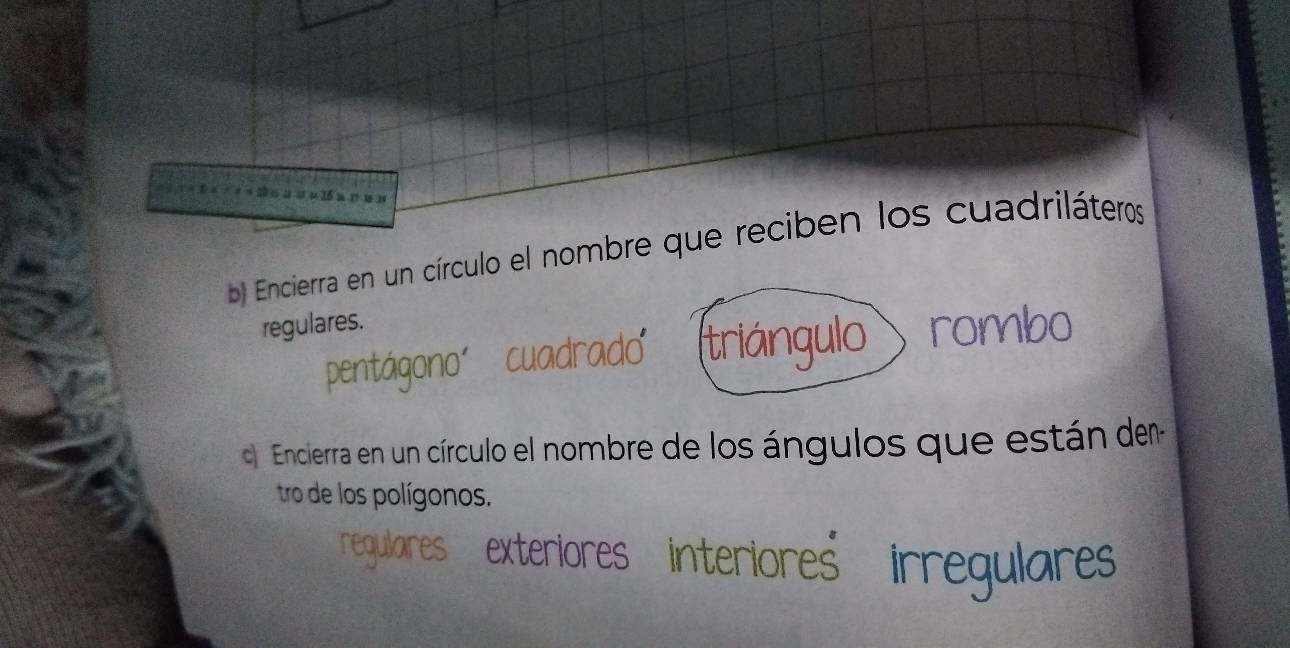 b) Encierra en un círculo el nombre que reciben los cuadriláteros
regulares.
pentágono cuadrado triángulo rombo
c) Encierra en un círculo el nombre de los ángulos que están den-
tro de los polígonos.
regulares exteriores interiores irregulares